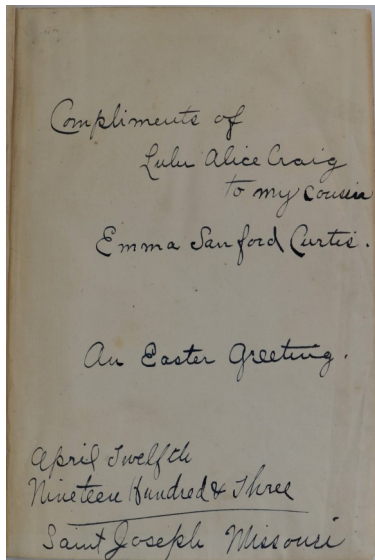 Compliments of
Lulu Alice Craig
to my cousin
Emma Sanford Curtis.
An Easter Greeting.
April Twelfth
Nineteen Hundred & Three
Saint Joseph Missouri